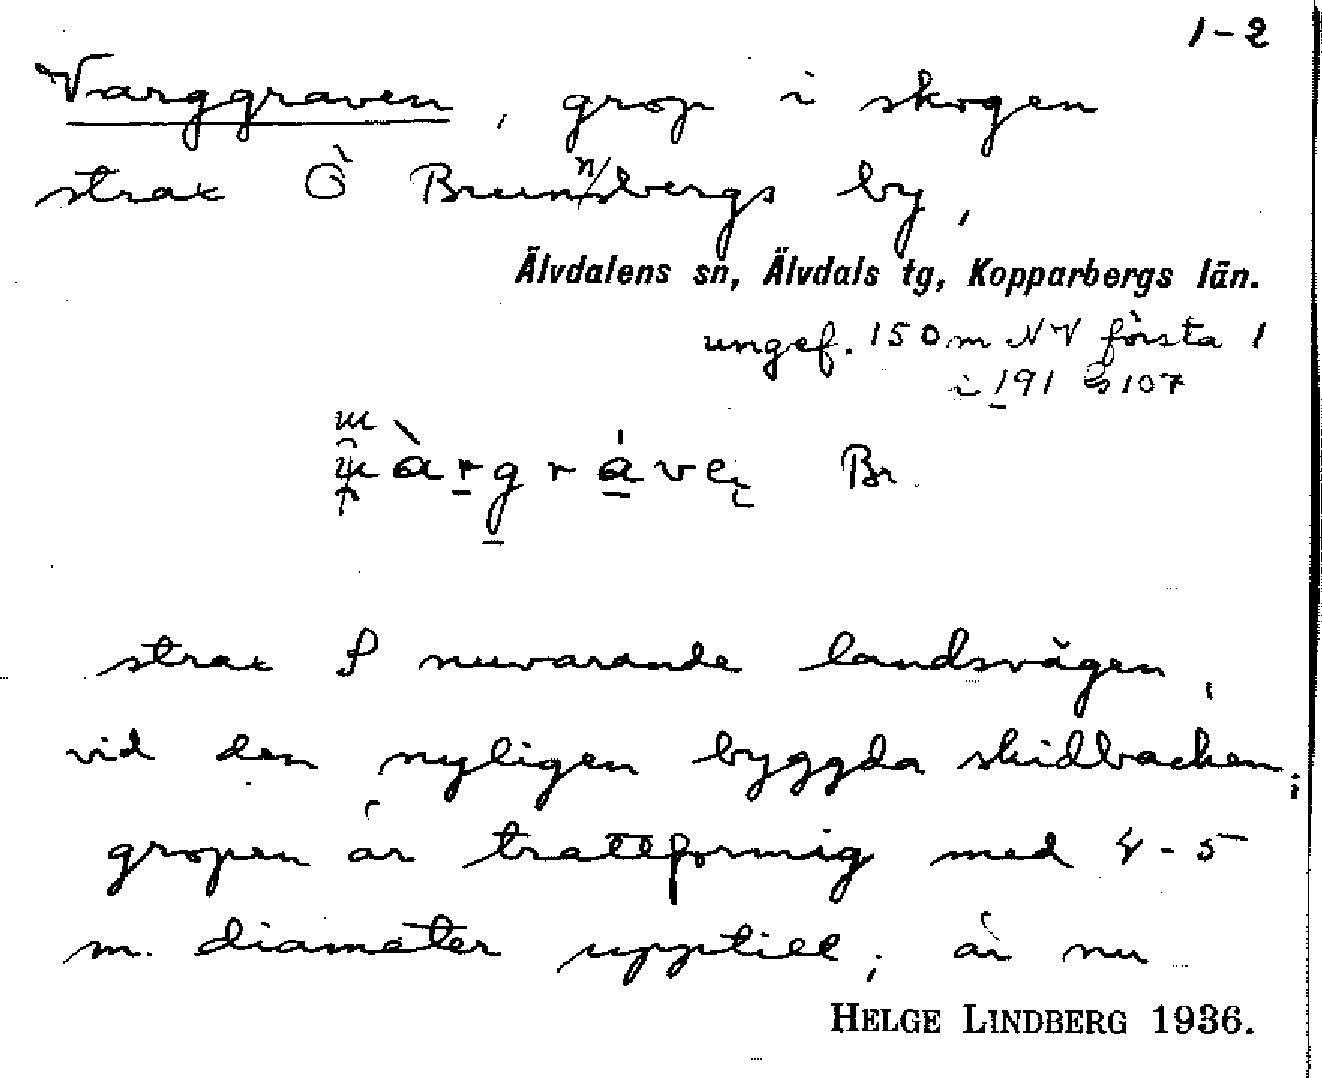 1-2
Varggraven, grop i skogen
strax Ö Brunnsbergs by,
Älvdalens sn, Älvdals tg, Kopparbergs län.
ungef. 150 m NV första 1
i 191 G107
àrgráveṇ Br.
strax S nuvarande landsvägen,
vid den nyligen byggda skidbacken;
gropen är trattformig med 4-5
m. diameter upptill; är nu
HELGE LINDBERG 1936.